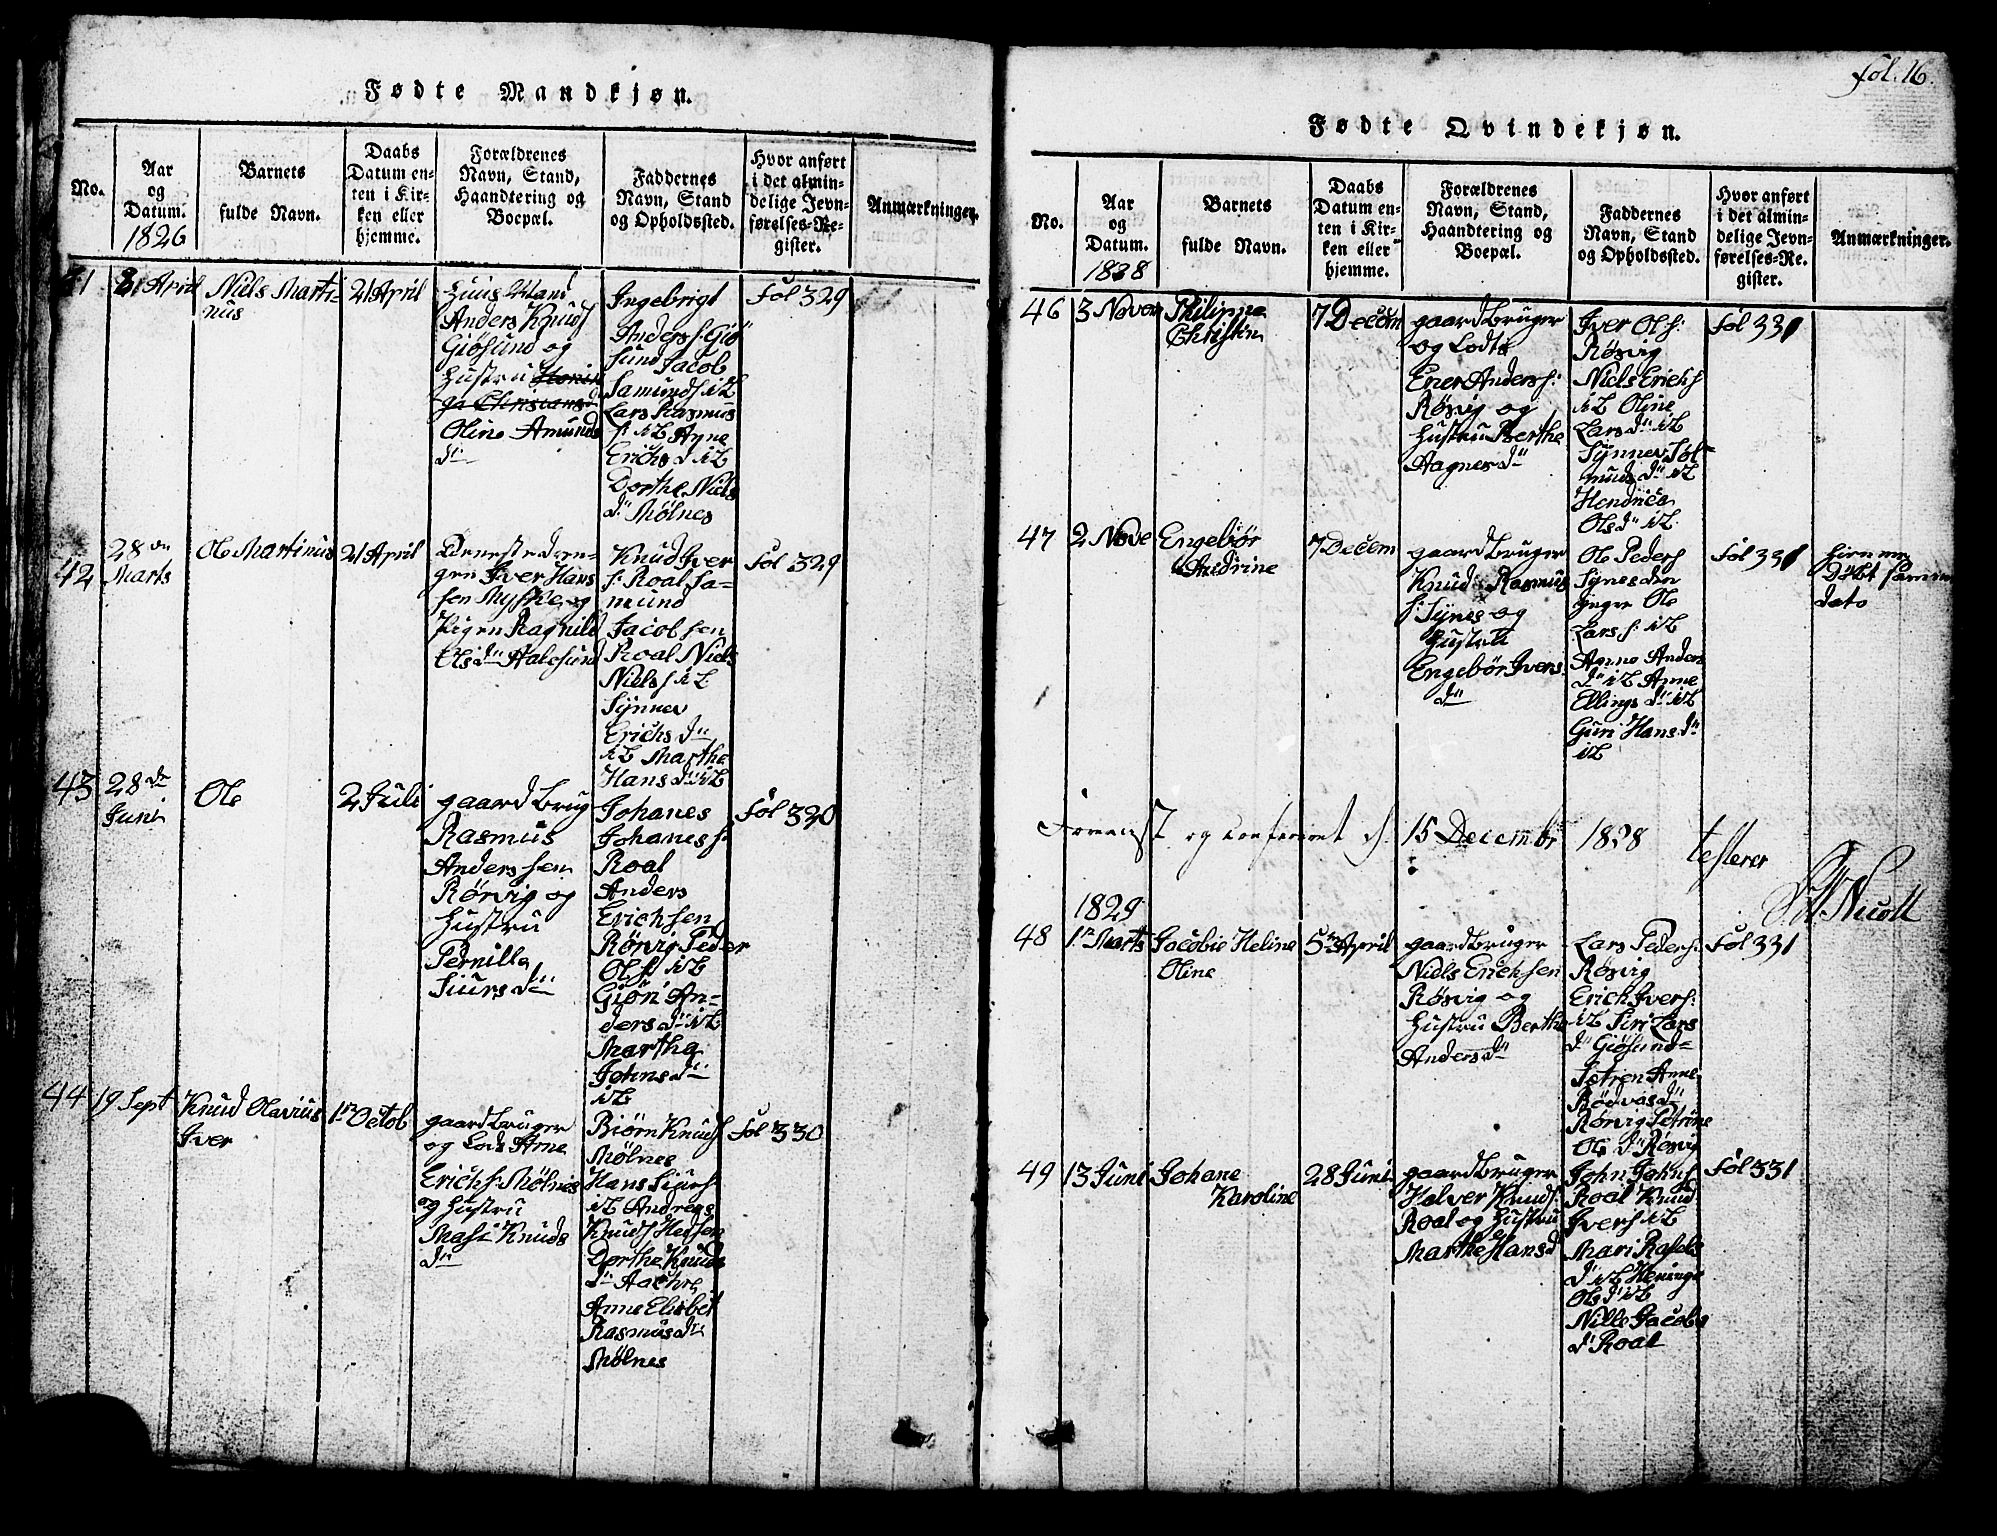 Fødte Mandkjøn.
No.
Aar
og
Datum.
1826
Barnets
fulde Navn.
Daabs
Datum en-
ten i Kir-
ken eller
hjemme.
Forældrenes
Navn, Stand,
Haandtering og
Boepæl.
Faddernes
Navn, Stand
og Opholdssted.
Hvor anført
i det almin-
delige Jevn-
førelses-Re-
gister.
Anmærkninger.
21 April
Niels Marti-
nus
21 April
Huus Mand
Anders Knuds
Giösund og
Hustru
Oline Amunds
dn
Ingebrigt
Anders s: Giö
sund Jacob
Samunds iZ
Lars Rasmus
s: iZ Agne
Erichs d iZ
Dorthe Niels
dn Mölnes
Fol 329
42
28 de
Marts
Ole Martinus
21 April
Tieneste dren-
gen Iver Hans
sen Myhre og
Pigen Ragnild
Ols dn Aalesund
Knud Iver
s: Roal Sa-
mund
Jacobsen
Roal Niels
Niels s iZ
Synnev
Erichs dn
iZ Marthe
Hans dn iZ
Fol 329
43
28 de
Juni
Ole
2 Juli
gaardbrug
Rasmus
Anderssen
Rörvig og
Hustru
Pernilla
Siurs dn
Johanes
Johanes s:
Roal
Anders
Erichsen
Rörvig Peder
Ols s: iZ
Giöri An-
ders dn iZ
Martha
Johns dn
iZ
Fol 330
44
19 Sept
Knud Olavius
Iver
1n Octob
gaardbruger
og Lods Arne
Erichs: Mölnes
og Hustru
Masi Knuds
dn
Biörn Knuds
Mölnes
Hans Siurs:
iZ Andreas
Knuds Hessen
Dorthe Knuds
dn Aachre
Anne Elisbet
Rasmus dn
Mölnes
Fol 330
fol. 16.
Fødte Qvindekjøn.
No.
Aar
og
Datum.
1828
Barnets
fulde Navn.
Daabs
Datum en-
ten i Kir-
ken eller
hjemme.
Forældrenes
Navn, Stand,
Haandtering og
Boepæl.
Faddernes
Navn, Stand
og Opholdssted.
Hvor anført
i det almin-
delige Jevn-
førelses-Re-
gister.
Anmærkninger.
46
3 Novem
Philippa
Christin
7 Decem
gaardbruger
og Lodts
Ener Anders s:
Rösvig og
Hustru Berthe
Aagnes dn
Iver Ols s:
Rösvig
Niels Erichs
iZ Oline
Lars dn iZ
Synnev Sol
munds dn iZ
Hendrica
Ols dn iZ
Fol 331
47
2 Nove
Engebör
Andrine
7 Decem
gaardbruger
Knud Rasmus
s: Synes og
Hustru
Engebör Ivers
dn
Ole Peders
Synes den
yngre Ole
Lars s: iZ
Anne Anders
dn iZ Anne
Ellings dn iZ
Guri Hans dn
iZ
Fol 331
hiemme
Döbt samme
dato
og confereret d.
15 Decembr
1828
testerer
Nicoll
1829
48
1n Marts
Jacobie Heline
Oline
5te April
gaardbruger
Niels Erichsen
Rösvig og
Hustru Berthe
Anders dn
Lars Peders:
Rösvig
Erich Ivers:
iZ Siri Lars
dn Giösund
Anne
Rörvig Petrine
Ols dn Rösvig
Fol 331
49
13 Juni
Johane
Karoline
28 Juni
gaardbruger
Halver Knuds:
Roal og Hustru
Marthe Hans d
John Johns
Roal Knud
Ivers iZ
Mari
dn iZ
Ols d iZ
Nille Jacobs
d Roal
Fol 331